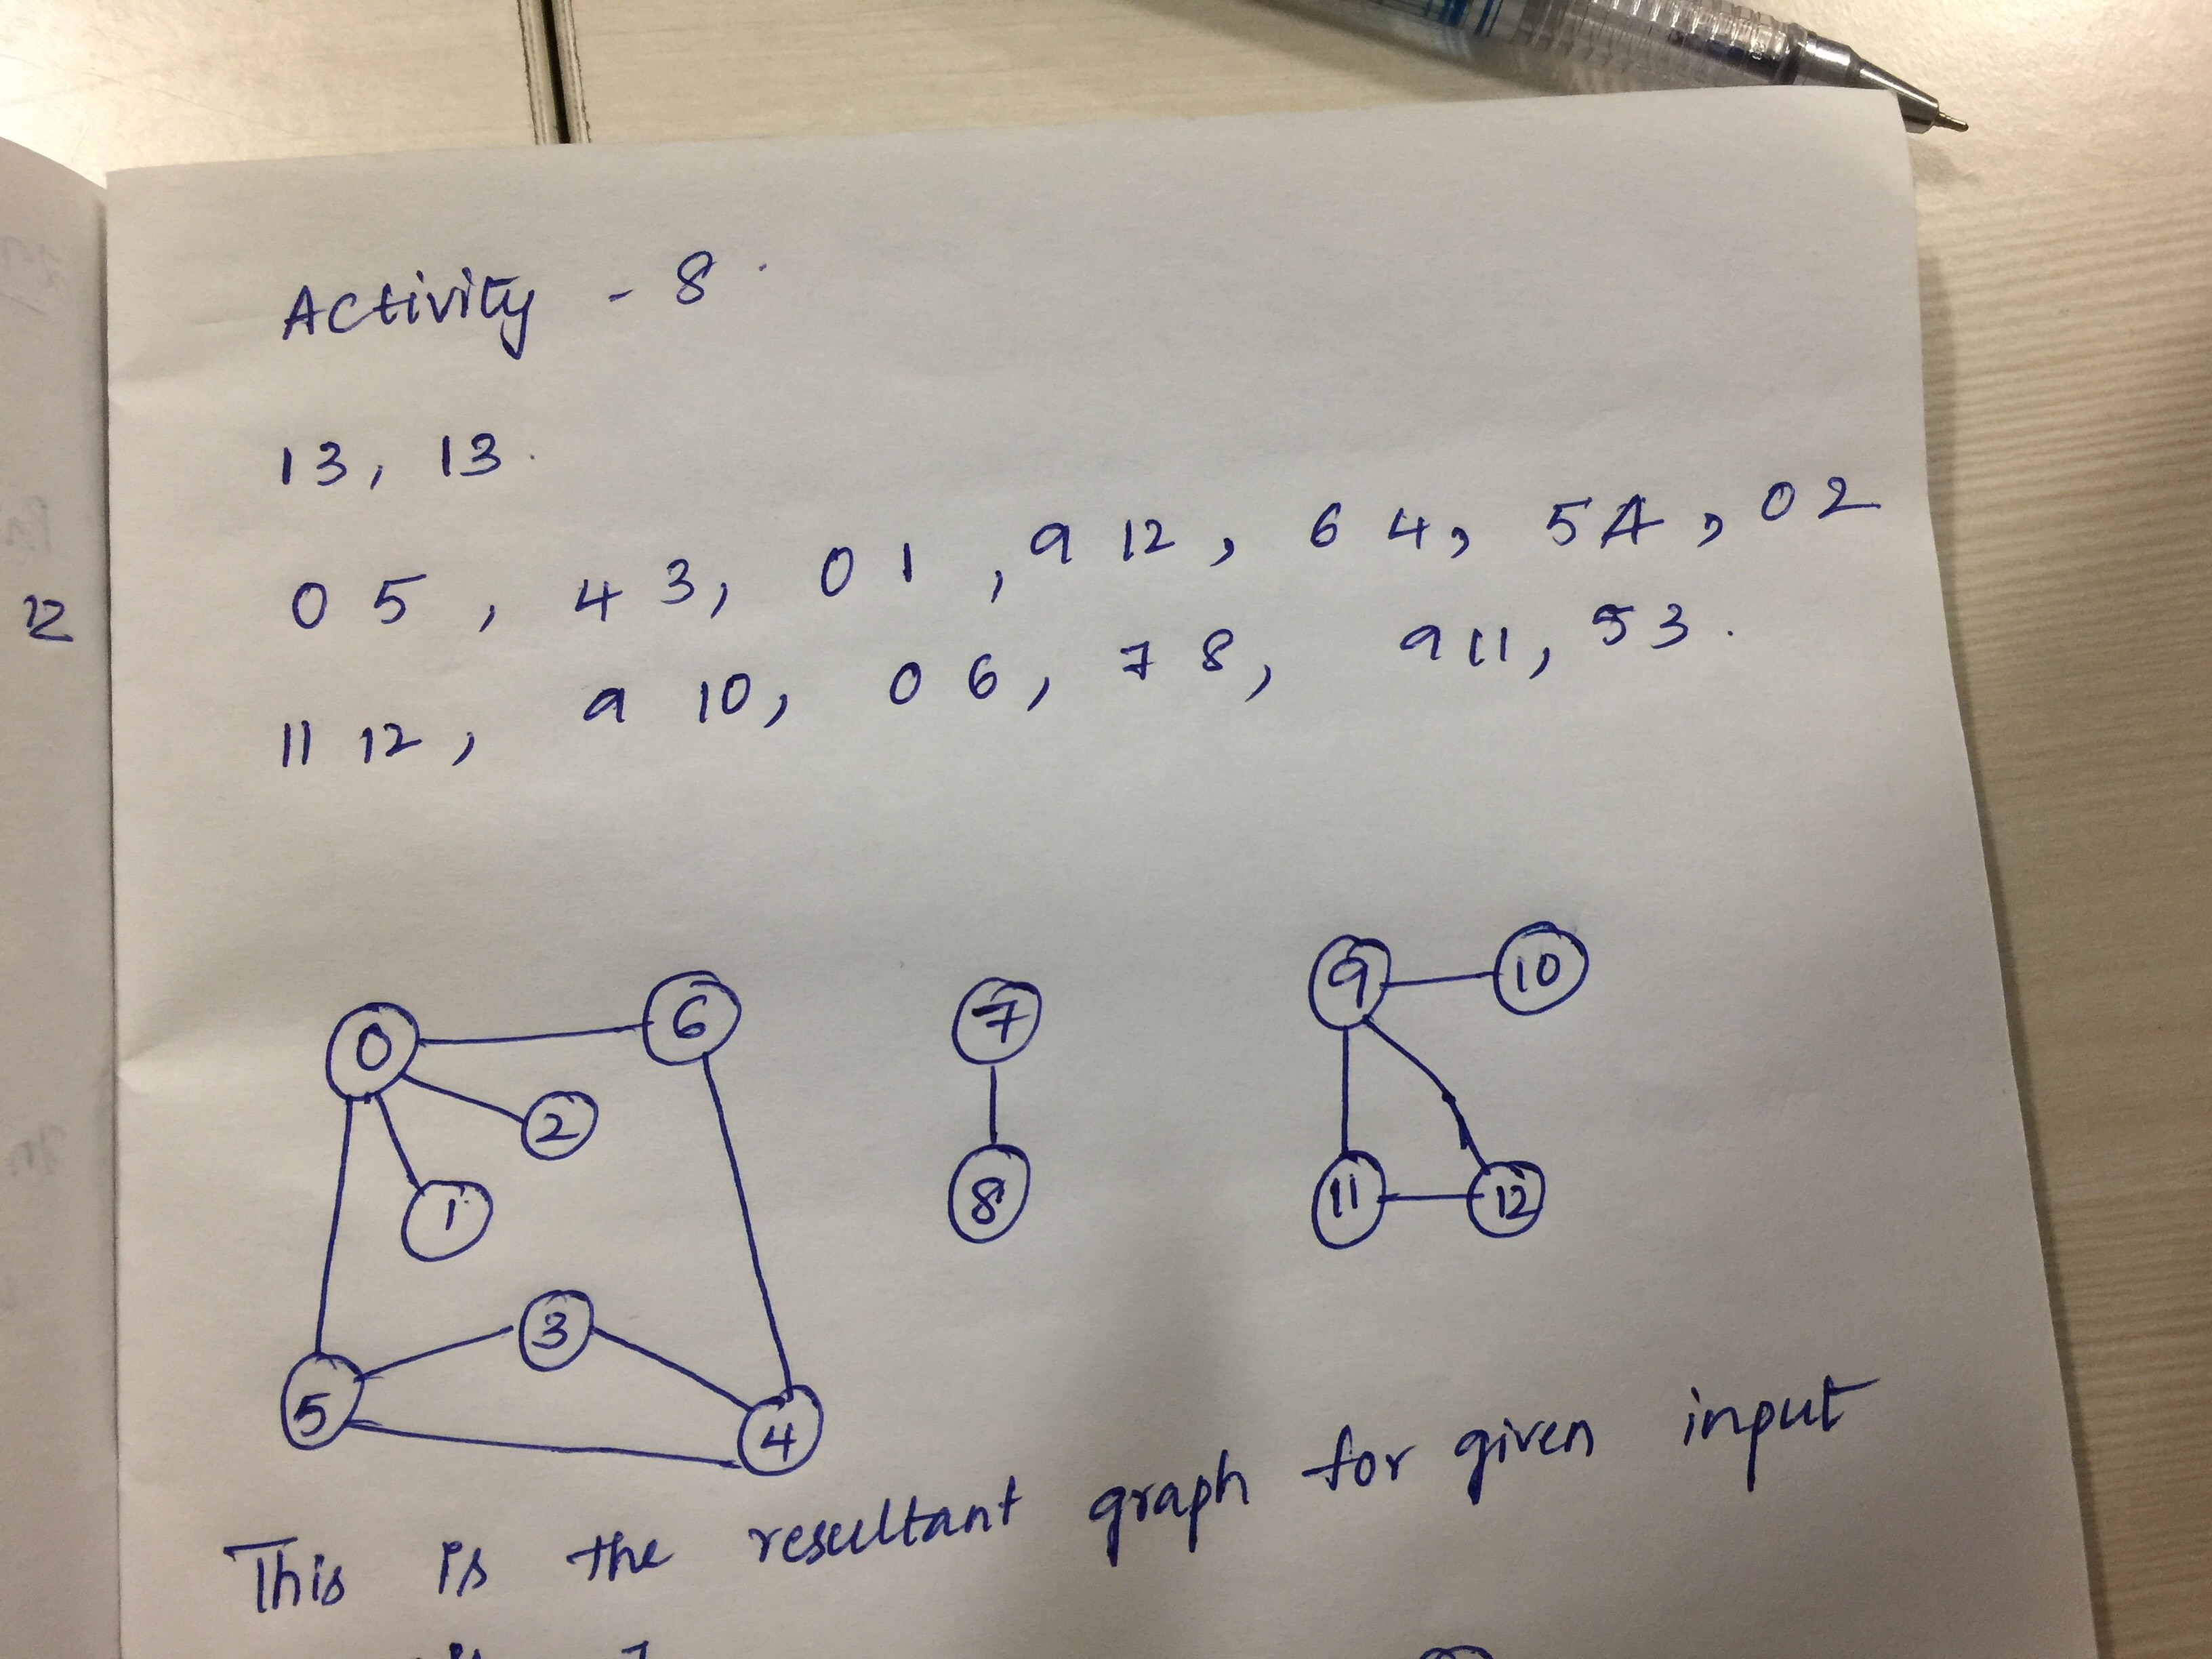 Activity - 8.
13, 13.
0 5, 4 3, 0 1, 9 12, 6 4, 5 4, 0 2
11 12, 9 10, 0 6, 7 8, 9 11, 5 3.
0 6
1 2
5 3 4
7
8
9 10
11 12
This is the resultant graph for given input
2